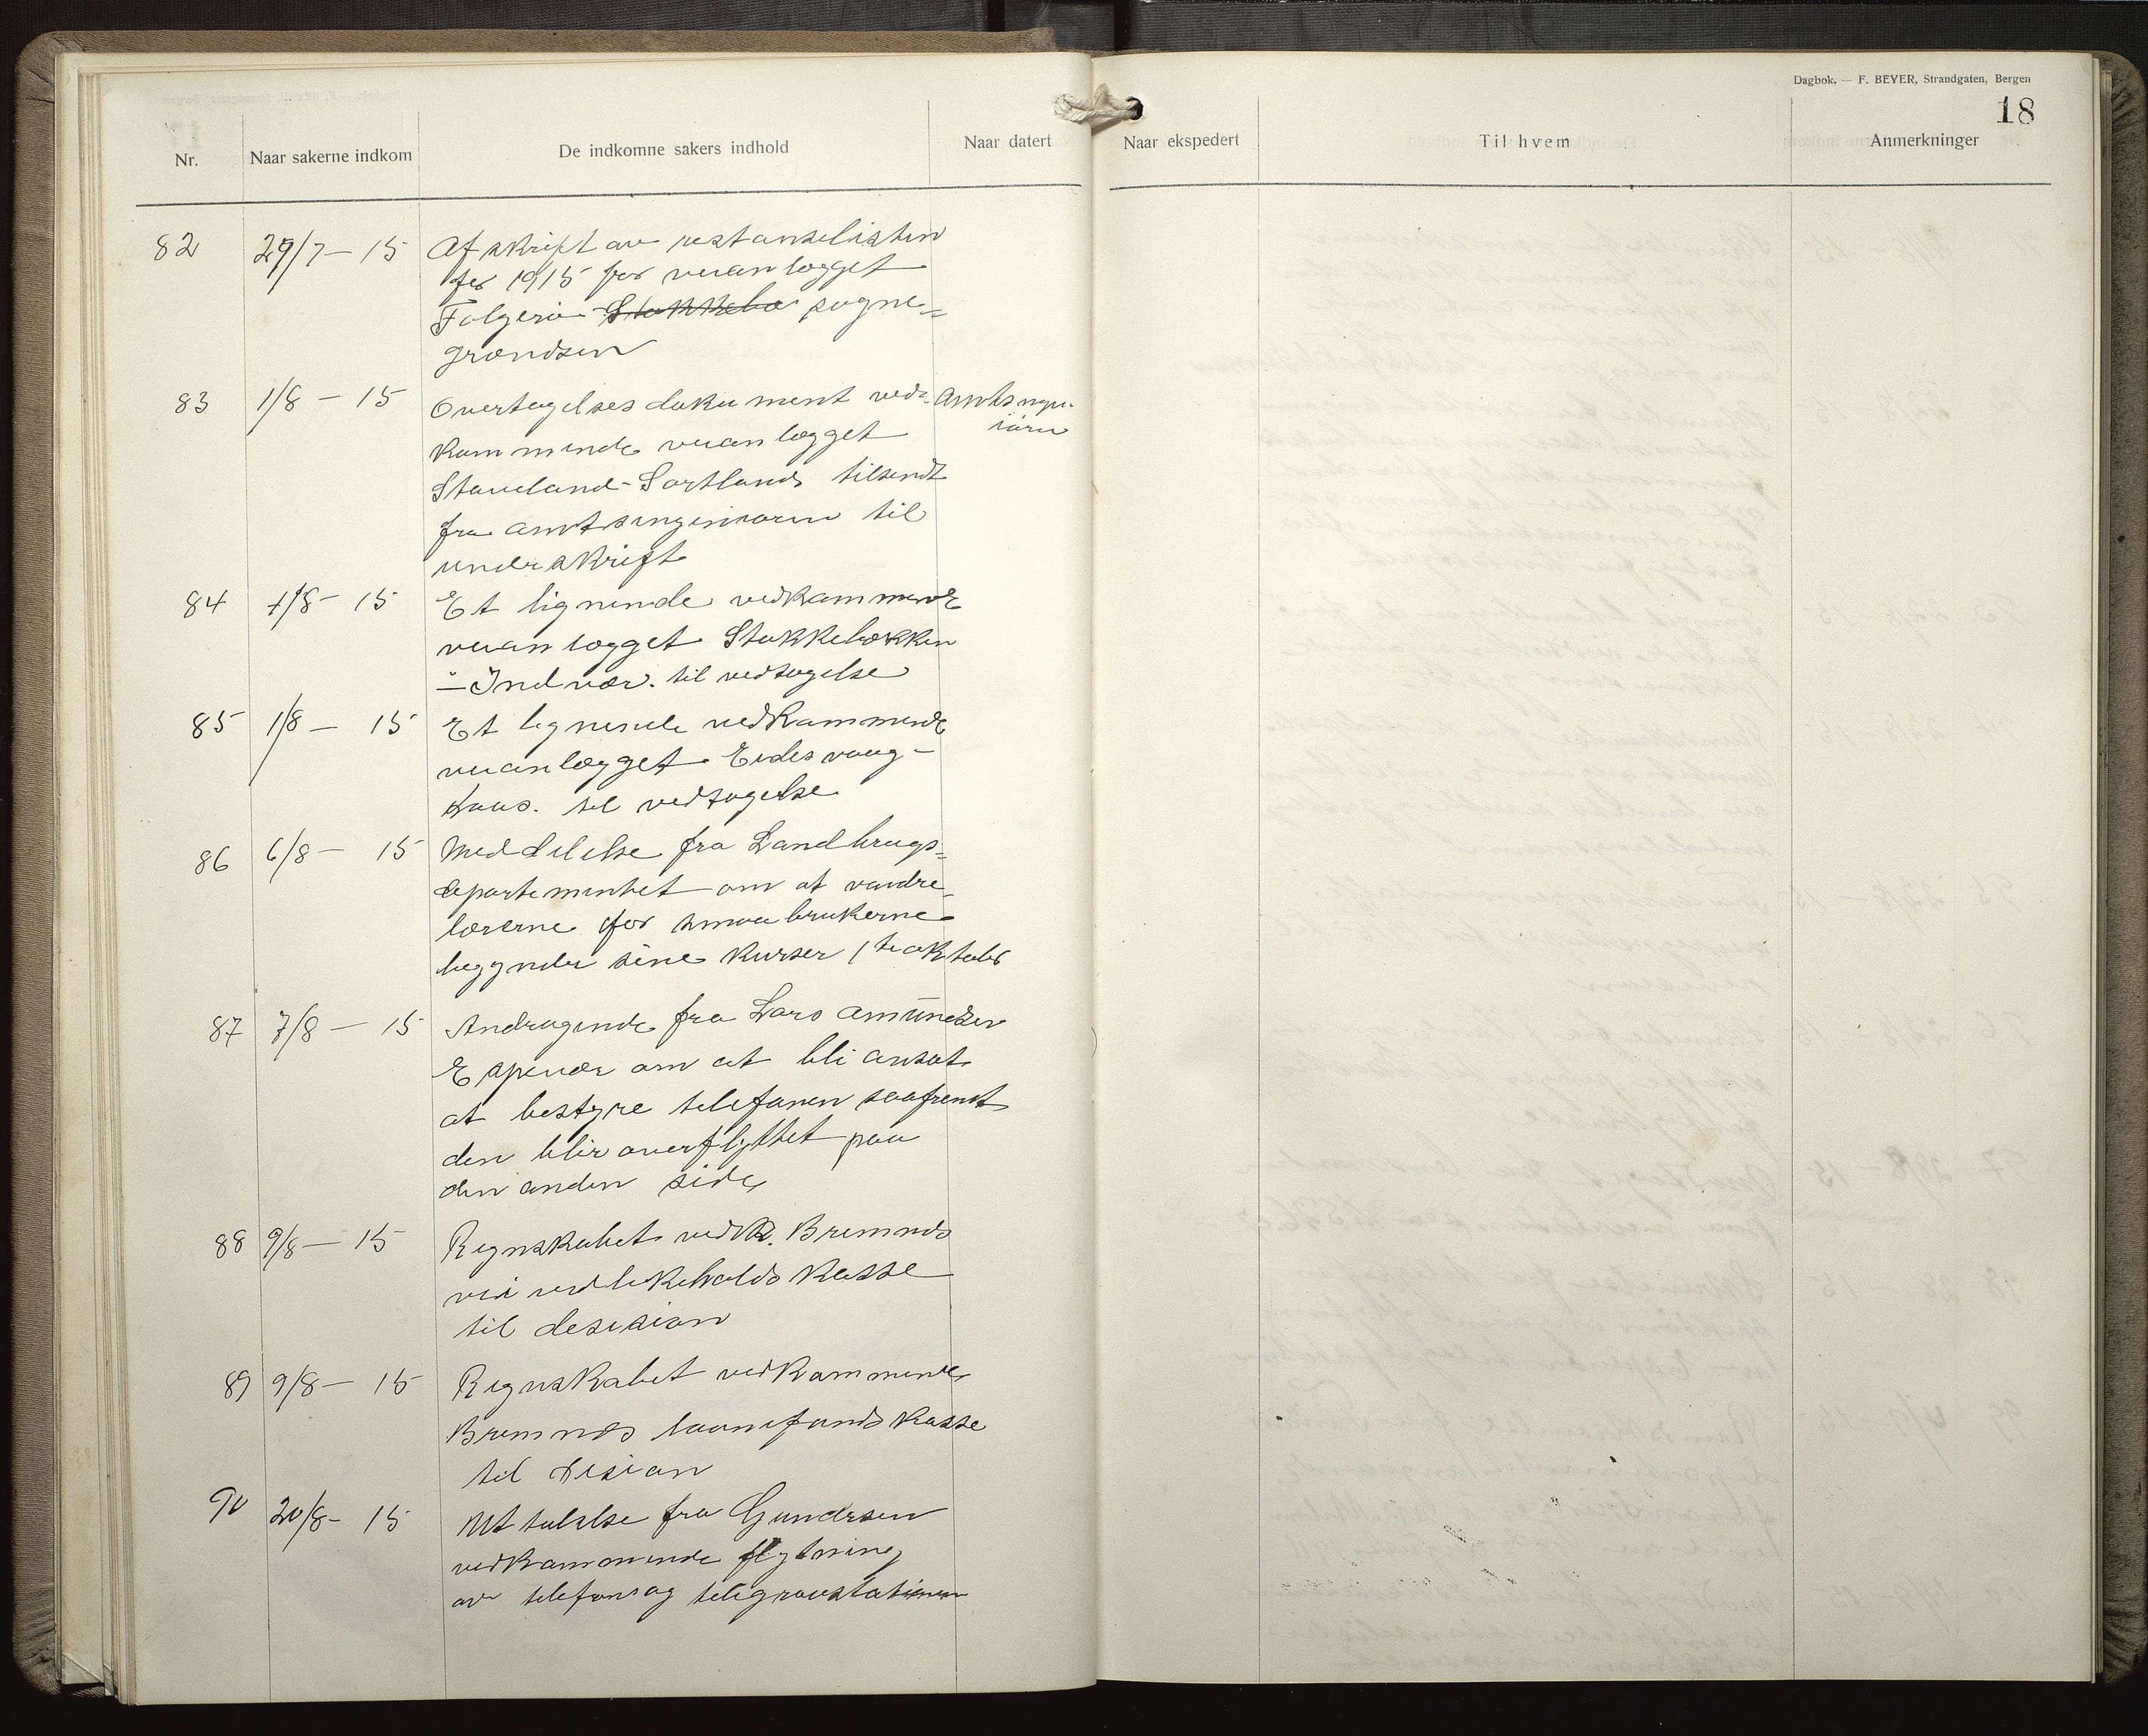 Dagbok. — F. BEYER, Strandgaten, Bergen
18
Nr. Naar sakerne indkom De indkomne sakers indhold Naar datert Naar ekspedert Til hvem Anmerkninger
82 29/7 – 15 Afskrift av restanselisten
for 1915 for veianlægget
Folgerø Stokkebø sogne=
grændsen
83 1/8 – 15 Overtagelsesdokument ved= Amtsingen-
kommende veianlægget iøren
Staveland-Sortland tilsendt
fra amtsingeniøren til
underskrift
84 1/8 – 15 Et lignende vedkommende
veianlægget Stokkebækken
– Indvær. til vedtagelse
85 1/8 – 15 Et lignende vedkommende
veianlægget Eidesvaag –
Kaas. til vedtagelse
86 6/8 – 15 Meddelelse fra Landbrugs=
departementet om at vandre-
lærerne for smaabrukerne
begynder sine kurser 1ste oktober
87 7/8 – 15 Andragende fra Lars Amundsen
Espevær om at bli ansat
at bestyre telefonen saafremt
den blir overflyttet paa
den anden side
88 9/8 – 15 Regnskabet vedk. Bremnes
vei vedlikeholds kasse
til desision
89 9/8 – 15 Regnskabet vedkommende
Bremnes laanefonds kasse
til desision
90 20/8 – 15 Uttalelse fra Gundersen
vedkommende flytning
av telefon og telegrafstationen